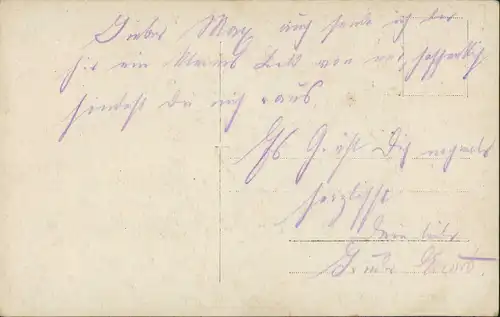 Lieber Max, auch sende ich Dir
hir ein kleines Bild von mir, hoffentlich
findest Du mich raus.
Es Grüßt Dich nochmals
herzlichst
Dein lieber
Bruder